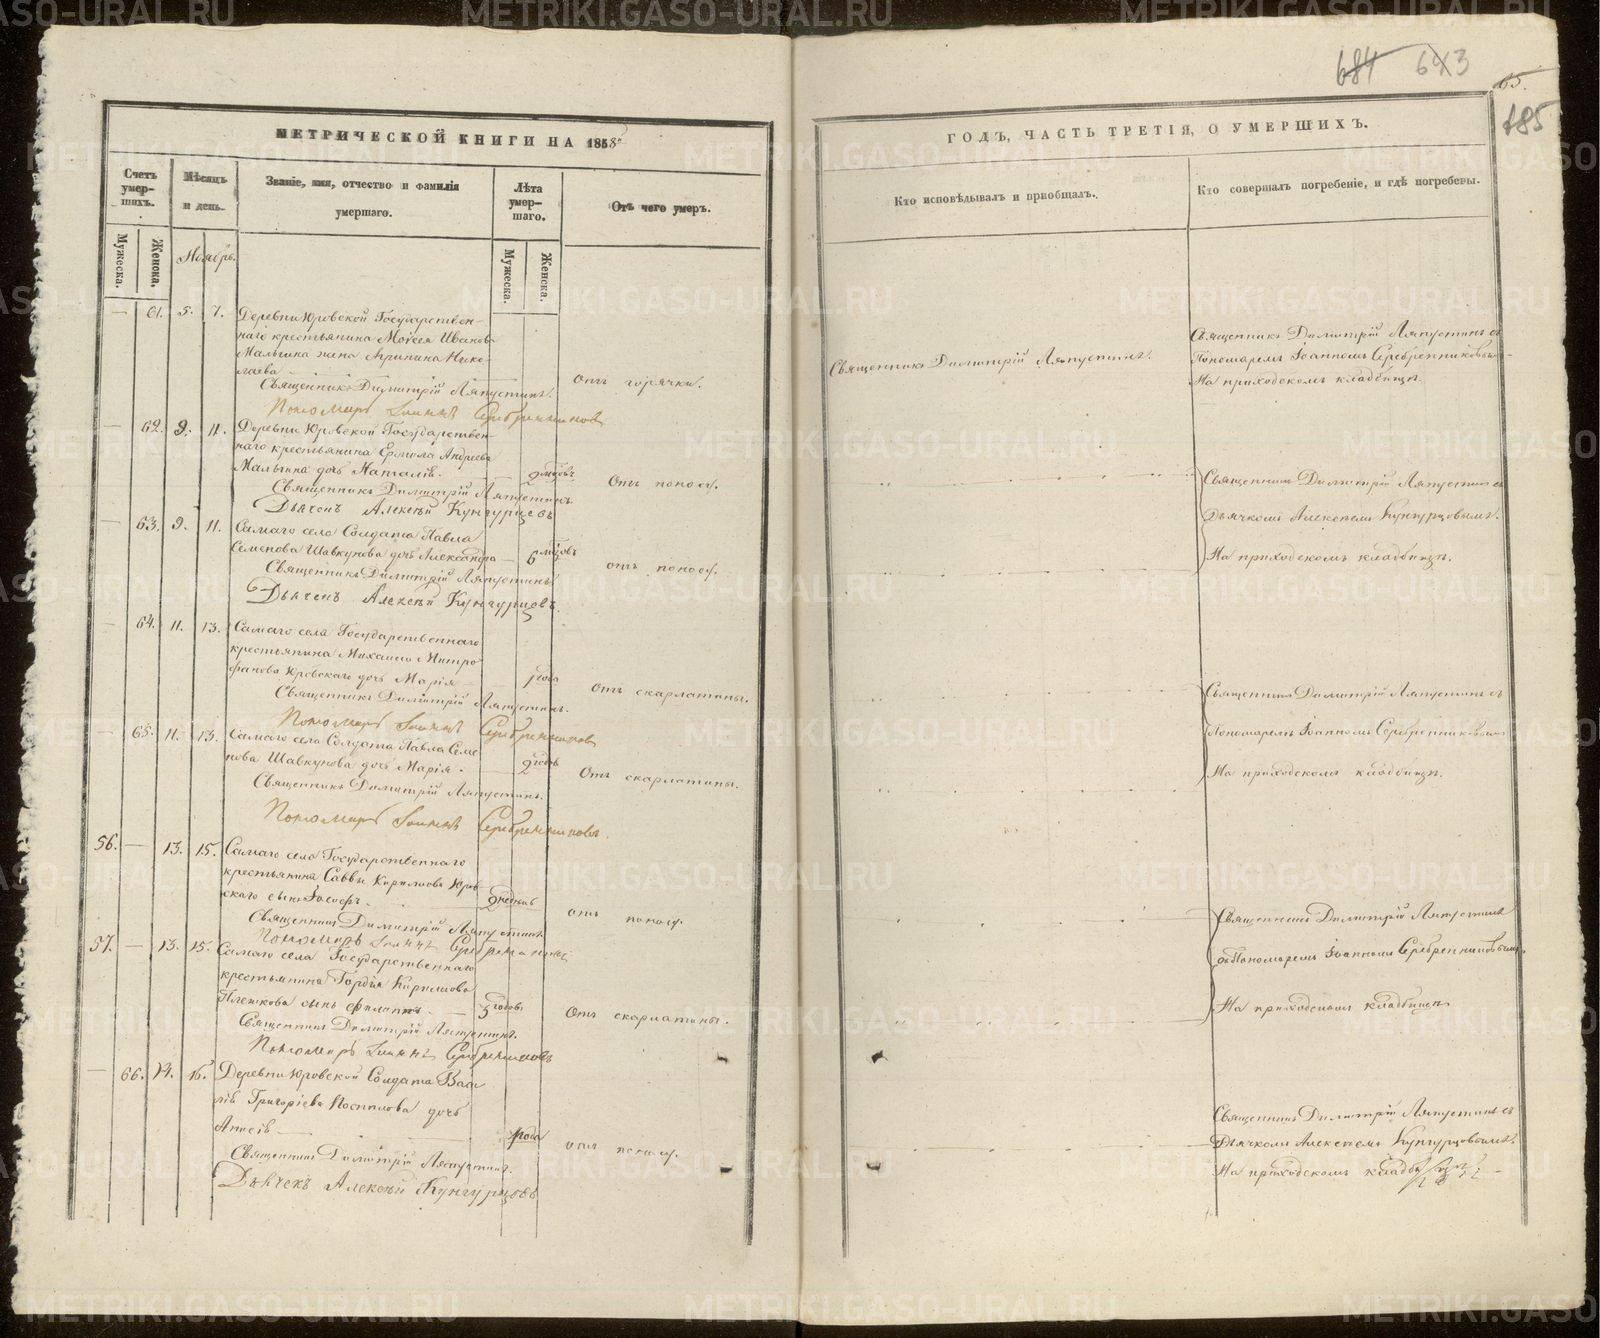 684 643
65.
185
МЕТРИЧЕСКОЙ КНИГИ НА 1858й
Счетъ умер-
шихъ.
Мѣсяцъ
и день.
Званіе, имя, отчество и фамилія
умершаго.
Лѣта
умер-
шаго.
Отъ чего умеръ.
Мужеска.
Женска.
Ноябрь.
Мужеска.
Женска.
— 61. 5. 7. Деревни Юровской Государствен-
наго крестьянина Моѵсея Иванова
Малыгина жена Ирина Нико-
лаева
Священникъ Димитрій Ляпустинъ.
отъ горячки.
Пономарь Іоаннъ Серебренниковъ
— 62. 9. 11. Деревни Юровской Государствен-
наго крестьянина Ермола Андреева
Малыгина дочь Наталія. 2 мѣсяцовъ
Отъ поносу.
Священникъ Димитрій Ляпустинъ.
Дьячекъ Алексѣй Кунгурцевъ
— 63. 9. 11. Самаго села Солдата Павла
Семенова Шавкунова дочь Александра — 6 мѣсяцовъ
отъ поносу.
Священникъ Димитрій Ляпустинъ
Дьячекъ Алексѣй Кунгурцовъ.
— 64. 11. 13. Самаго села Государственнаго
крестьянина Михаила Митро
фанова Юровскаго дочь Марія — 1 года
Отъ скарлатины.
Священникъ Димитрій Ляпустинъ.
Пономарь Іоаннъ Серебренниковъ
— 65. 11. 13. Самаго села Солдата Павла Семе
нова Шавкунова дочь Марія. 2 годовъ
Отъ скарлатины.
Священникъ Димитрій Ляпустинъ.
Пономарь Іоаннъ Серебренниковъ.
56. — 13. 15. Самаго села Государственнаго
крестьянина Саввы Кирилова Юров
скаго сынъ 2 недѣль
отъ поносу.
Священникъ Димитрій Ляпустинъ
Пономарь Іоаннъ Серебренниковъ
57. — 13. 15. Самаго села Государственнаго
крестьянина Гордія Кирилова
Плешкова сынъ Филиппъ. — 5 годовъ
Отъ скарлатины.
Священникъ Димитрій Ляпустинъ.
Пономарь Іоаннъ Серебренниковъ
— 66. 14. 16. Деревни Юровской Солдата Васи
лія Григоріева Поспилова дочь
1 года
отъ поносу.
Священникъ Димитрій Ляпустинъ.
Дьячекъ Алексѣй Кунгурцовъ
ГОДЪ, ЧАСТЬ ТРЕТІЯ, О УМЕРШИХЪ.
Кто исповѣдывалъ и пріобщалъ.
Кто совершалъ погребеніе, и гдѣ погребены.
Священникъ Димитрій Ляпустинъ.
Священникъ Димитрій Ляпустинъ съ
Пономаремъ Іоанномъ Серебренниковымъ
На приходскомъ кладбищѣ.
Священникъ Димитрій Ляпустинъ съ
Дьячкомъ Алексѣемъ Кунгурцовымъ.
На приходскомъ кладбищѣ.
Священникъ Димитрій Ляпустинъ съ
Пономаремъ Іоанномъ Серебренниковымъ
На приходскомъ кладбищѣ.
Священникъ Димитрій Ляпустинъ
съ Пономаремъ Іоанномъ Серебренниковымъ.
На приходскомъ кладбищѣ
Священникъ Димитрій Ляпустинъ съ
Дьячкомъ Алексѣемъ Кунгурцовымъ.
На приходскомъ кладбищѣ
METRIKI.GASO-URAL.RU